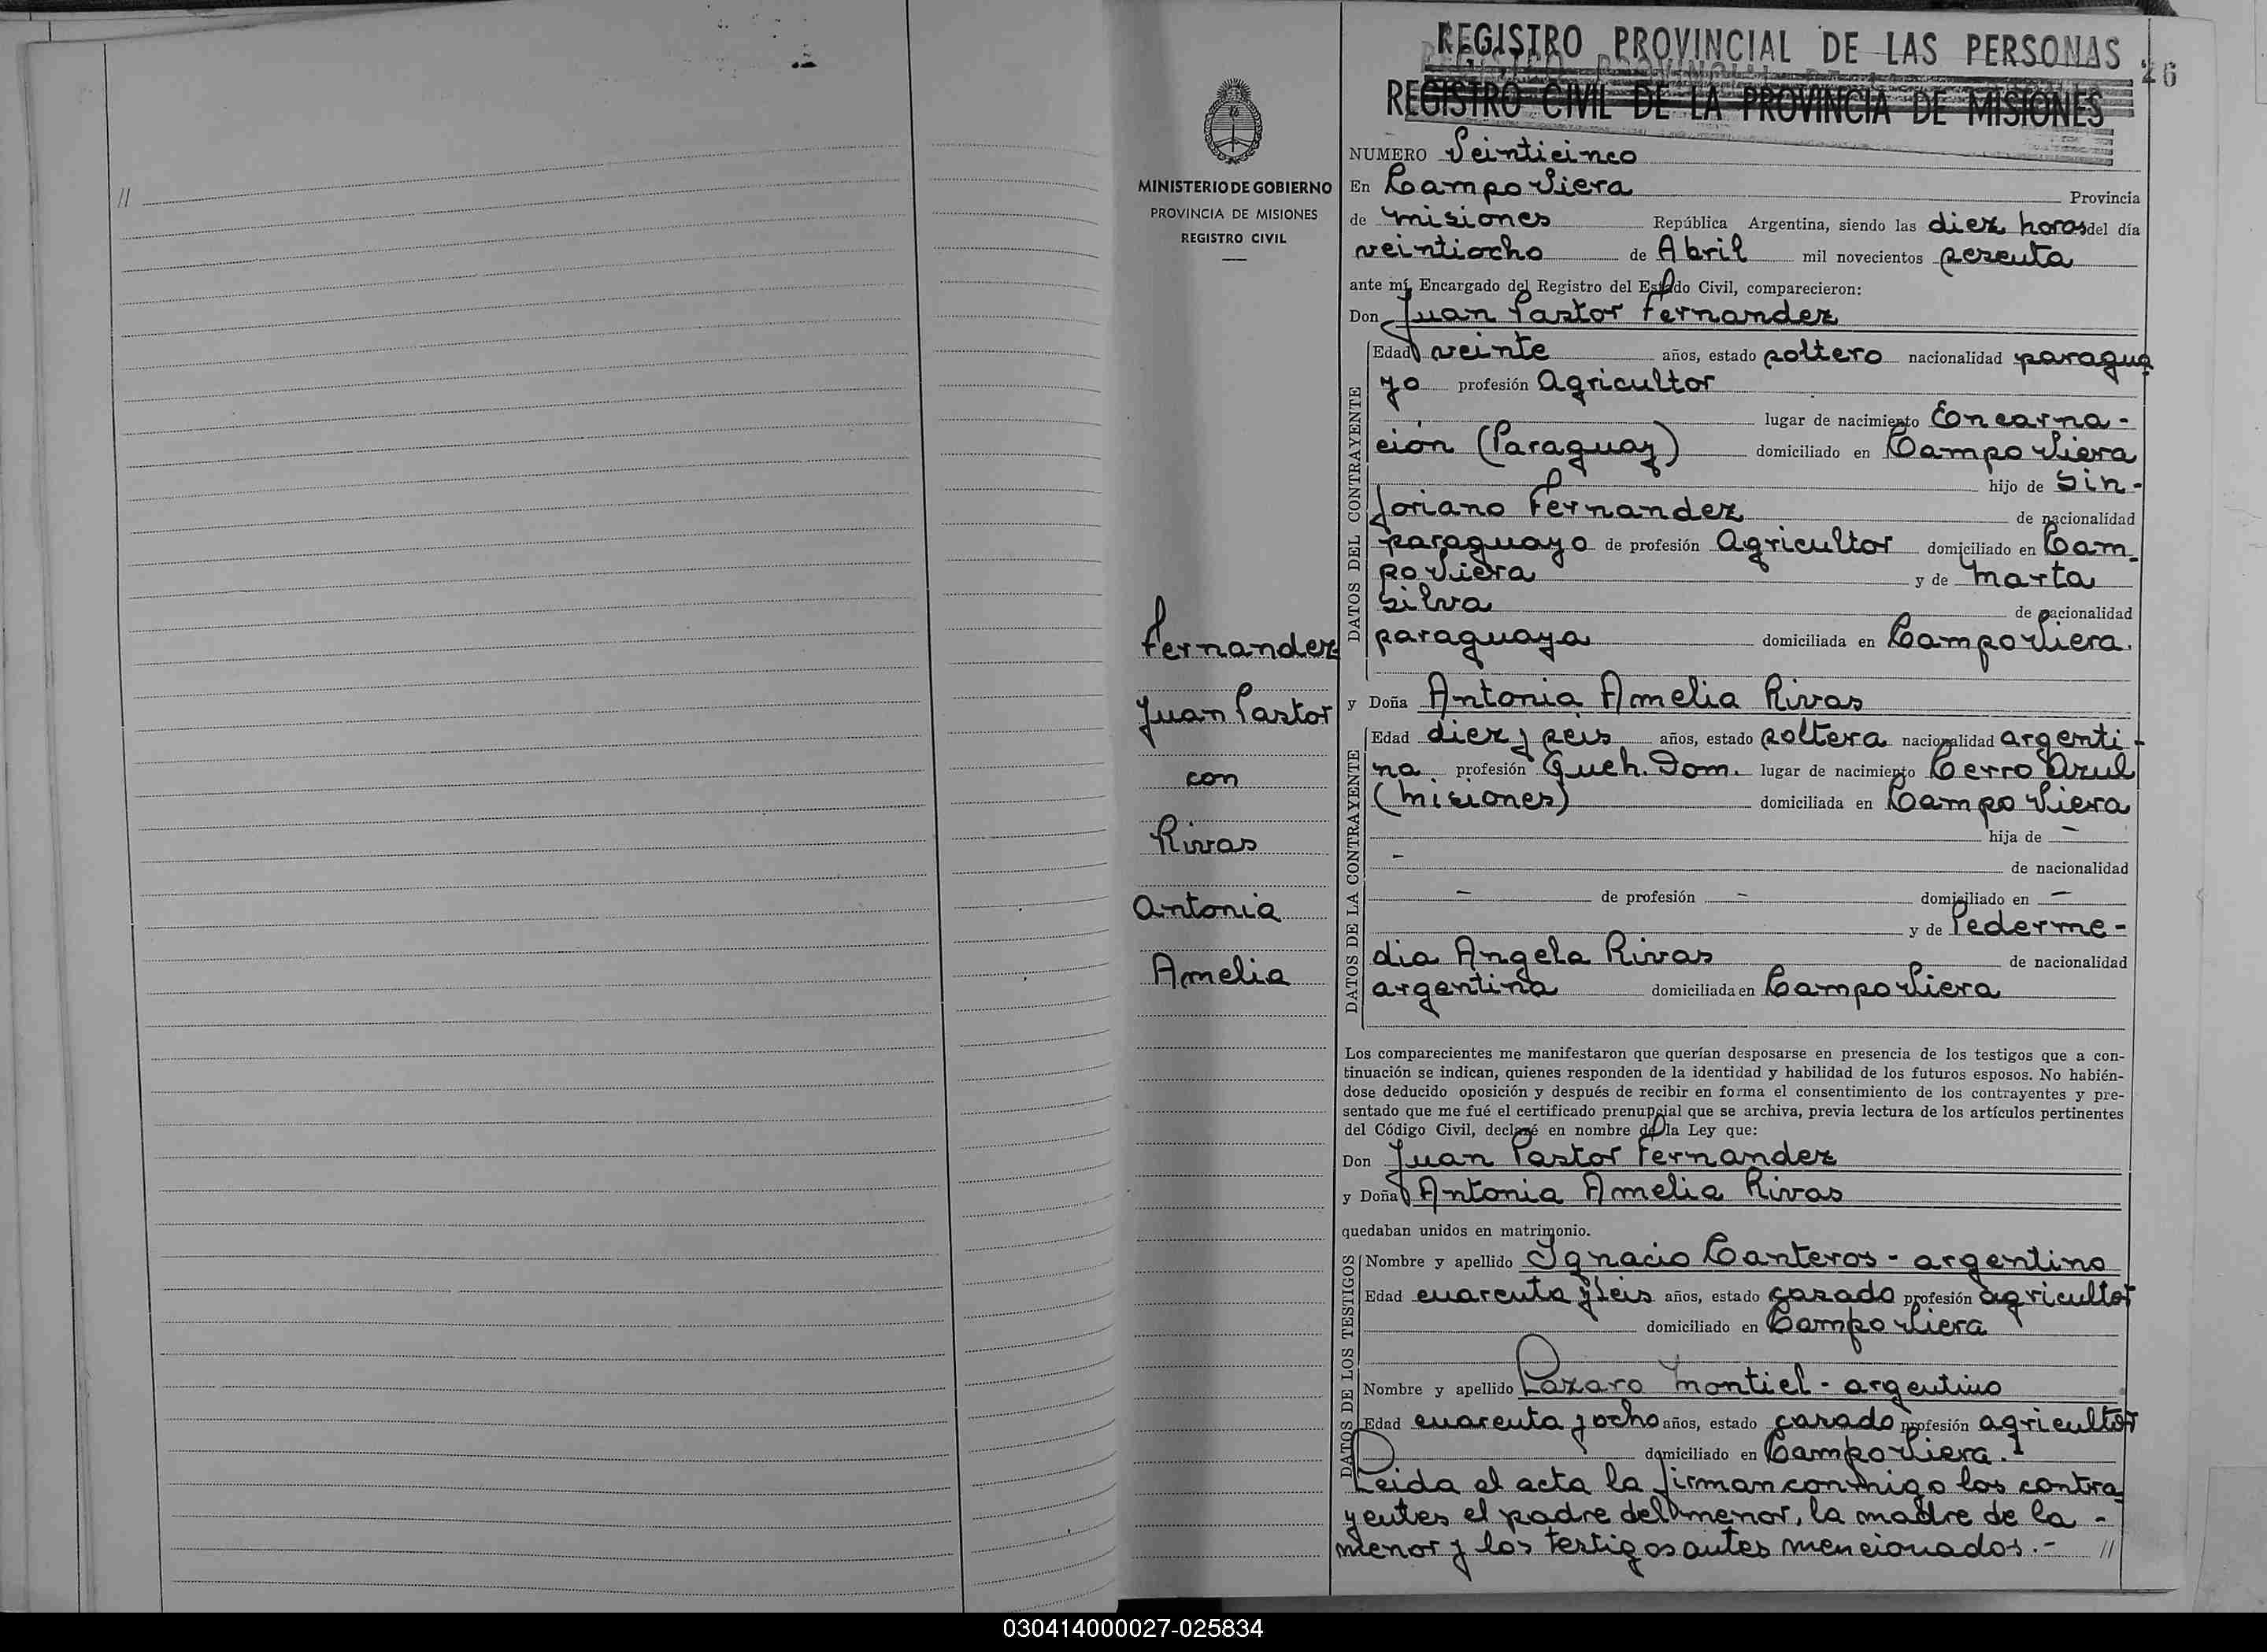 //
REGISTRO PROVINCIAL DE LAS PERSONAS
26
REGISTRO CIVIL DE LA PROVINCIA DE MISIONES
MINISTERIO DE GOBIERNO
PROVINCIA DE MISIONES
REGISTRO CIVIL
Fernandez
Juan Pastor
con
Rivas
Antonia
Amelia
NUMERO Veinticinco
En Campo Viera Provincia
de Misiones República Argentina, siendo las diez horas del día
veintiocho de Abril mil novecientos sesenta
ante mí, Encargado del Registro del Estado Civil, comparecieron:
Don Juan Pastor Fernandez
DATOS DEL CONTRAYENTE
Edad veinte años, estado soltero nacionalidad paragua
yo profesión Agricultor
lugar de nacimiento Encarna-
ción (Paraguay) domiciliado en Campo Viera
hijo de Sin-
foriano Fernandez de nacionalidad
paraguayo de profesión Agricultor domiciliado en Cam-
po Viera y de Marta
Silva de nacionalidad
paraguaya domiciliada en Campo Viera.
y Doña Antonia Amelia Rivas
DATOS DE LA CONTRAYENTE
Edad diez y seis años, estado soltera nacionalidad argenti-
na profesión Queh. Dom. lugar de nacimiento Cerro Azul
(Misiones) domiciliada en Campo Viera
hija de —
— de nacionalidad
— de profesión — domiciliado en —
y de Pederme-
dia Angela Rivas de nacionalidad
argentina domiciliada en Campo Viera
Los comparecientes me manifestaron que querían desposarse en presencia de los testigos que a con-
tinuación se indican, quienes responden de la identidad y habilidad de los futuros esposos. No habién-
dose deducido oposición y después de recibir en forma el consentimiento de los contrayentes y pre-
sentado que me fué el certificado prenupcial que se archiva, previa lectura de los artículos pertinentes
del Código Civil, declaré en nombre de la Ley que:
Don Juan Pastor Fernandez
y Doña Antonia Amelia Rivas
quedaban unidos en matrimonio.
DATOS DE LOS TESTIGOS
Nombre y apellido Ignacio Canteros - argentino
Edad cuarenta y seis años, estado casado profesión agricultor
domiciliado en Campo Viera
Nombre y apellido Lazaro Montiel - argentino
Edad cuarenta y ocho años, estado casado profesión agricultor
domiciliado en Campo Viera.
Leida el acta la firman conmigo los contra
yentes el padre del menor, la madre de la -
menor y los testigos antes mencionados.- //
030414000027-025834